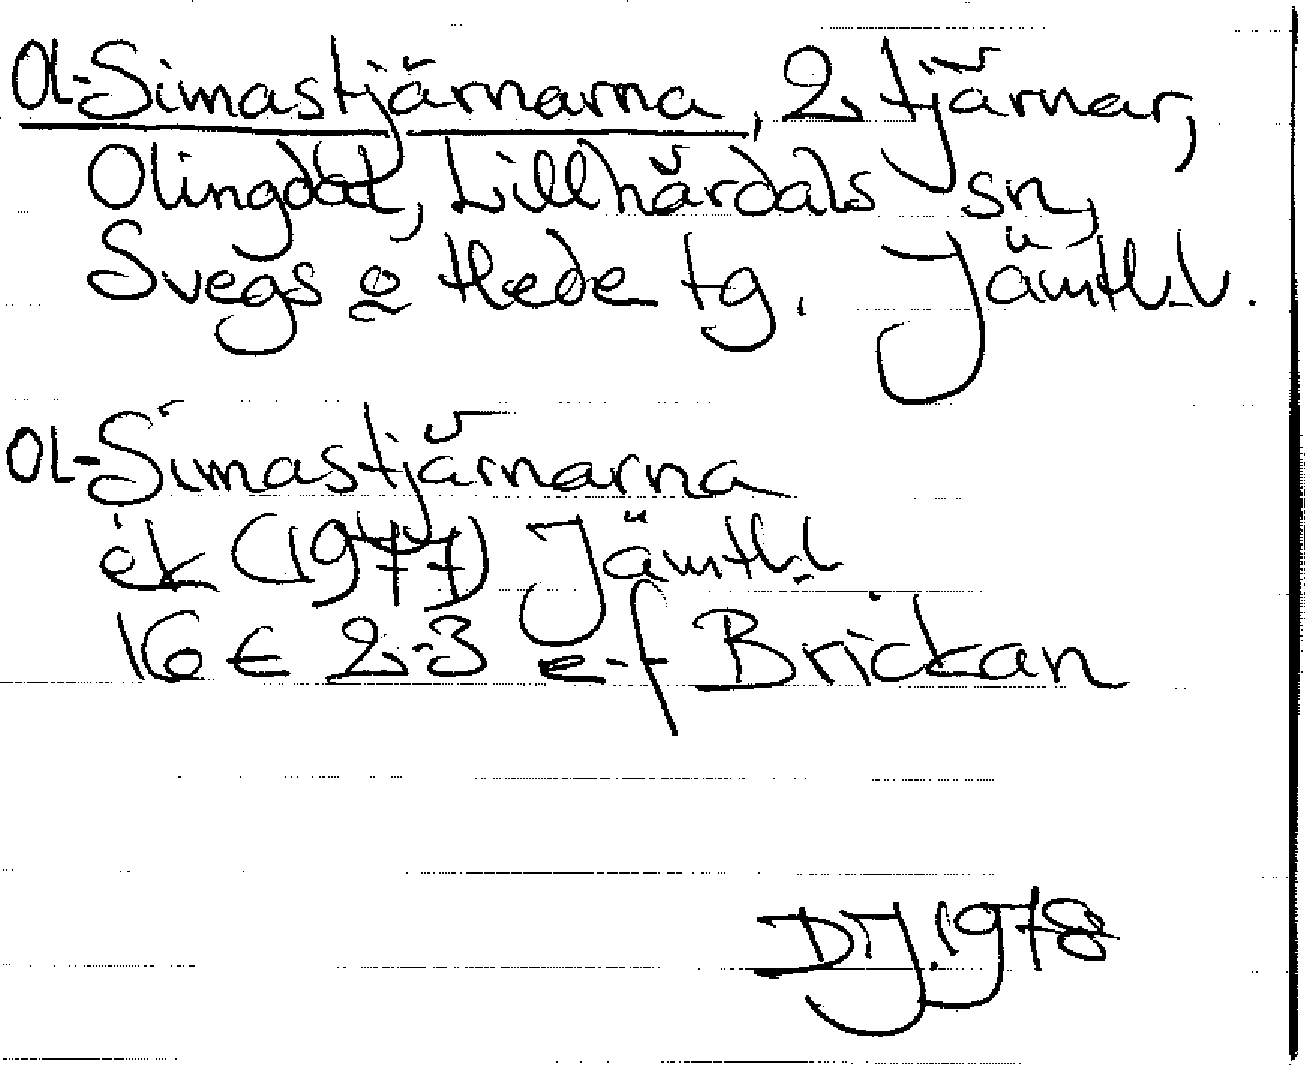 OL-Simastjärnarna, 2 tjärnar,
Olingdal, Lillhärdals sn,
Svegs o Hede tg. Jämtl.l.
OL-Simastjärnarna
ek (1977) Jämtl.l
16 E 2-3 e-f Brickan
DJ.1978